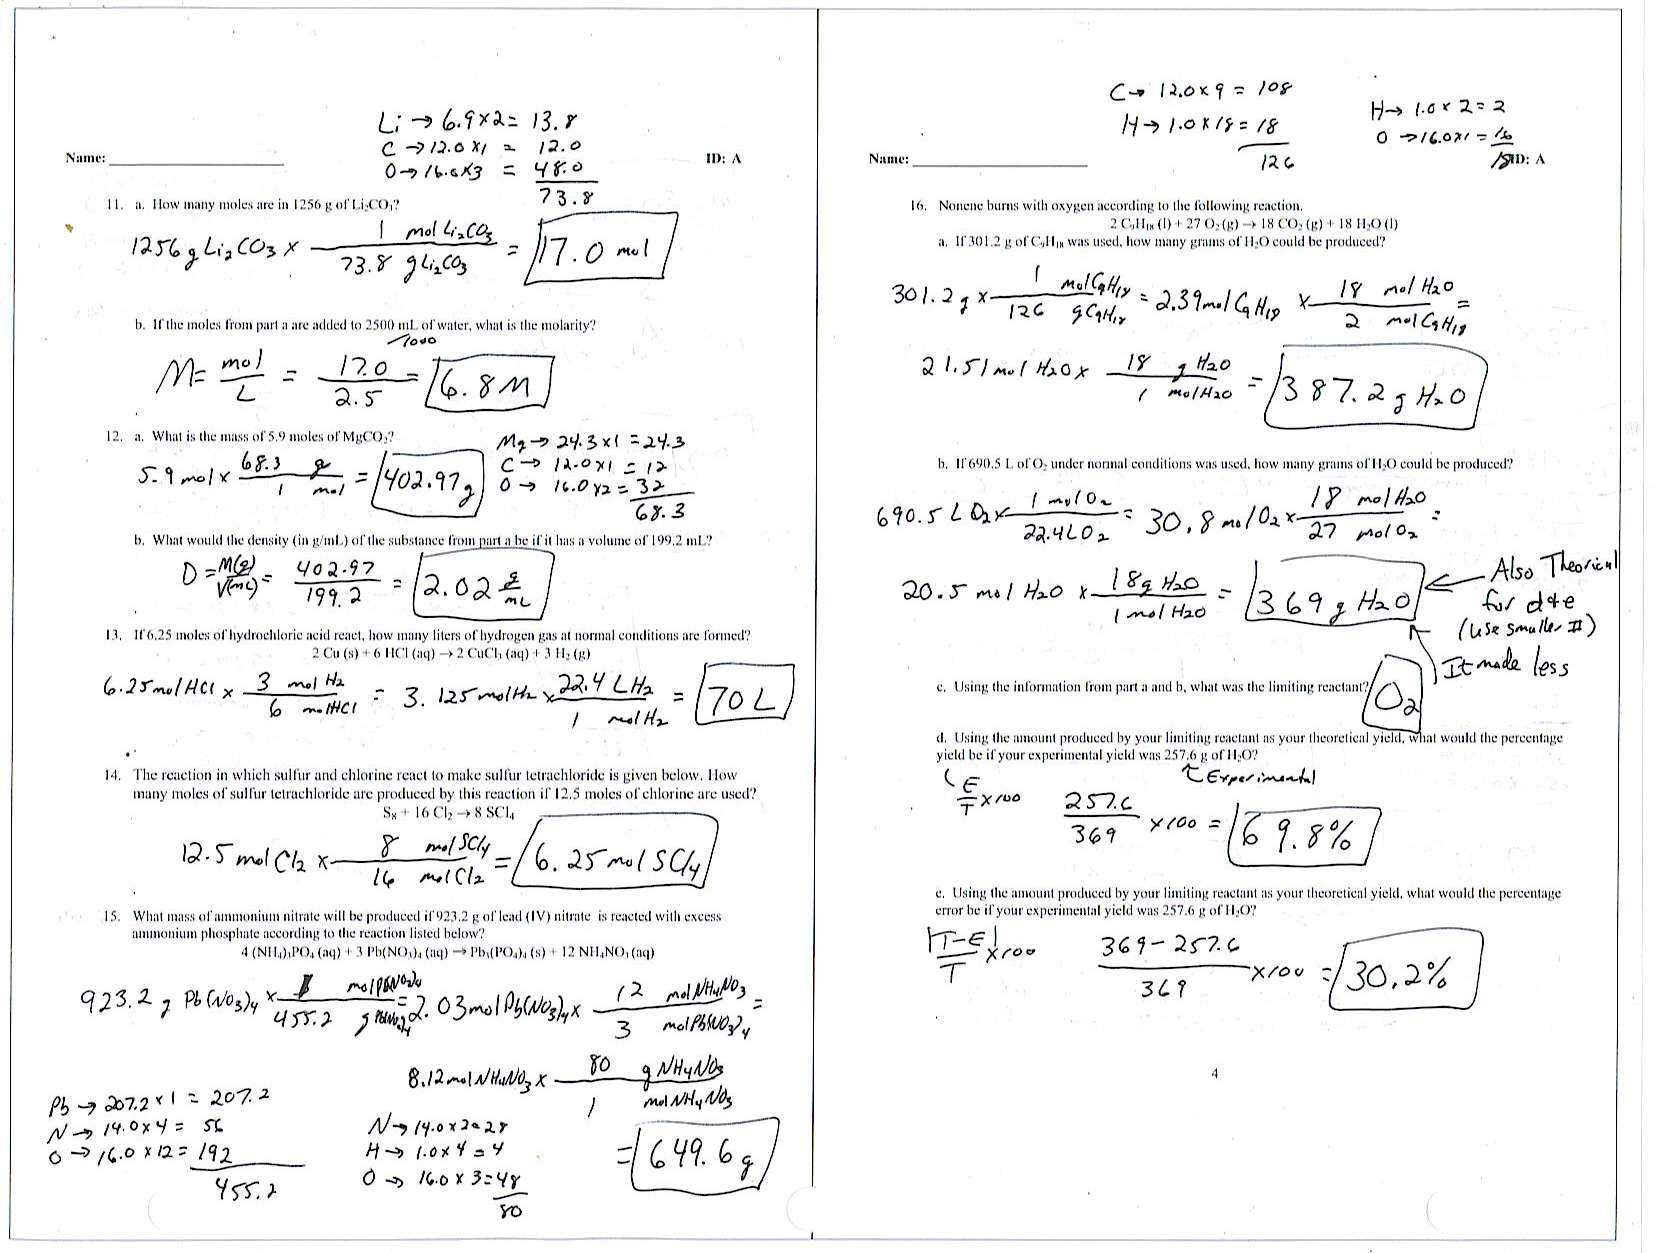 Li → 6.9 x 2 = 13.8
C → 12.0 x 1 = 12.0
O → 16.0 x 3 = 48.0
73.8
Name: ID: A
11. a. How many moles are in 1256 g of Li₂CO₃?
1256 g Li₂CO₃ x 1 mol Li₂CO₃ / 73.8 g Li₂CO₃ = 17.0 mol
b. If the moles from part a are added to 2500 mL of water, what is the molarity?
/1000
M = mol / L = 17.0 / 2.5 = 6.8 M
12. a. What is the mass of 5.9 moles of MgCO₂?
Mg → 24.3 x 1 = 24.3
C → 12.0 x 1 = 12
O → 16.0 x 2 = 32
68.3
5.9 mol x 68.3 g / 1 mol = 402.97 g
b. What would the density (in g/mL) of the substance from part a be if it has a volume of 199.2 mL?
D = M(g) / V(mL) = 402.97 / 199.2 = 2.02 g/mL
13. If 6.25 moles of hydrochloric acid react, how many liters of hydrogen gas at normal conditions are formed?
2 Cu (s) + 6 HCl (aq) → 2 CuCl₃ (aq) + 3 H₂ (g)
6.25 mol HCl x 3 mol H₂ / 6 mol HCl = 3.125 mol H₂ x 22.4 L H₂ / 1 mol H₂ = 70 L
14. The reaction in which sulfur and chlorine react to make sulfur tetrachloride is given below. How
many moles of sulfur tetrachloride are produced by this reaction if 12.5 moles of chlorine are used?
S₈ + 16 Cl₂ → 8 SCl₄
12.5 mol Cl₂ x 8 mol SCl₄ / 16 mol Cl₂ = 6.25 mol SCl₄
15. What mass of ammonium nitrate will be produced if 923.2 g of lead (IV) nitrate is reacted with excess
ammonium phosphate according to the reaction listed below?
4 (NH₄)₃PO₄ (aq) + 3 Pb(NO₃)₄ (aq) → Pb₃(PO₄)₄ (s) + 12 NH₄NO₃ (aq)
923.2 g Pb(NO₃)₄ x 1 mol Pb(NO₃)₄ / 455.2 g Pb(NO₃)₄ = 2.03 mol Pb(NO₃)₄ x 12 mol NH₄NO₃ / 3 mol Pb(NO₃)₄ =
8.12 mol NH₄NO₃ x 80 g NH₄NO₃ / 1 mol NH₄NO₃
= 649.6 g
Pb → 207.2 x 1 = 207.2
N → 14.0 x 4 = 56
O → 16.0 x 12 = 192
455.2
N → 14.0 x 2 = 28
H → 1.0 x 4 = 4
O → 16.0 x 3 = 48
80
C → 12.0 x 9 = 108
H → 1.0 x 18 = 18
126
H → 1.0 x 2 = 2
O → 16.0 x 1 = 16
18
Name: ID: A
16. Nonene burns with oxygen according to the following reaction.
2 C₉H₁₈ (l) + 27 O₂ (g) → 18 CO₂ (g) + 18 H₂O (l)
a. If 301.2 g of C₉H₁₈ was used, how many grams of H₂O could be produced?
301.2 g x 1 mol C₉H₁₈ / 126 g C₉H₁₈ = 2.39 mol C₉H₁₈ x 18 mol H₂O / 2 mol C₉H₁₈ =
21.51 mol H₂O x 18 g H₂O / 1 mol H₂O = 387.2 g H₂O
b. If 690.5 L of O₂ under normal conditions was used, how many grams of H₂O could be produced?
690.5 L O₂ x 1 mol O₂ / 22.4 L O₂ = 30.8 mol O₂ x 18 mol H₂O / 27 mol O₂ =
20.5 mol H₂O x 18 g H₂O / 1 mol H₂O = 369 g H₂O
Also Theorical
for d+e
(use smaller #)
It made less
c. Using the information from part a and b, what was the limiting reactant? O₂
d. Using the amount produced by your limiting reactant as your theoretical yield, what would the percentage
yield be if your experimental yield was 257.6 g of H₂O?
Experimental
E / T x 100 257.6 / 369 x 100 = 69.8%
e. Using the amount produced by your limiting reactant as your theoretical yield, what would the percentage
error be if your experimental yield was 257.6 g of H₂O?
|T-E| / T x 100 369 - 257.6 / 369 x 100 = 30.2%
4